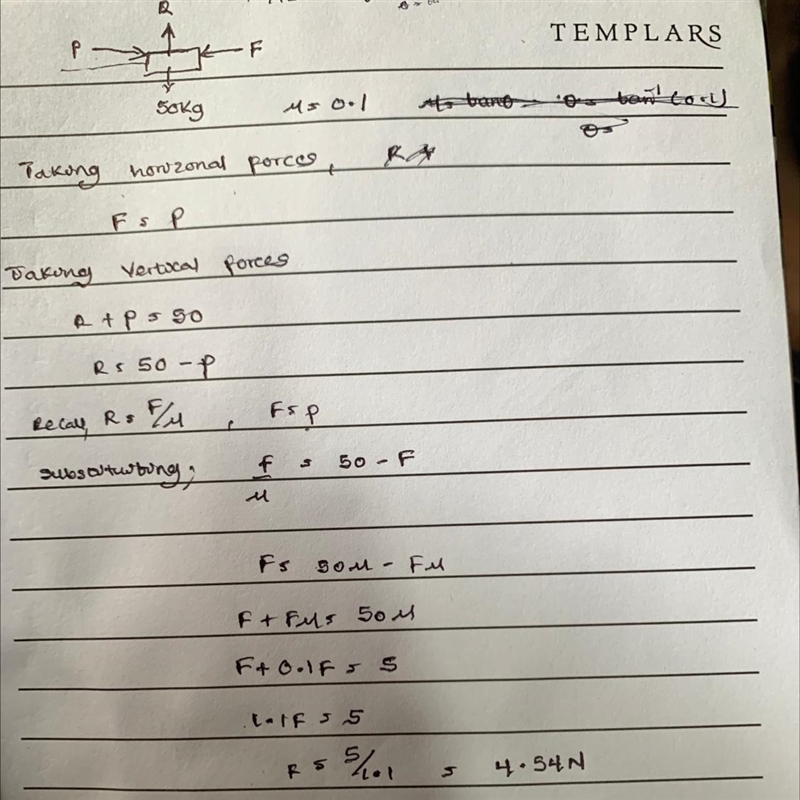 R
TEMPLARS
P F
50Kg μ = 0.1 μ = tanθ θ = tan⁻¹(0.1)
θ=
Taking horizonal forces, R
F = P
Taking Vertical forces
R + P = 50
R = 50 - P
Recall, R = F/μ , F = P
Substituting; f/μ = 50 - F
F = 50μ - Fμ
F + Fμ = 50μ
F + 0.1F = 5
1.1F = 5
R = 5/1.1 = 4.54N